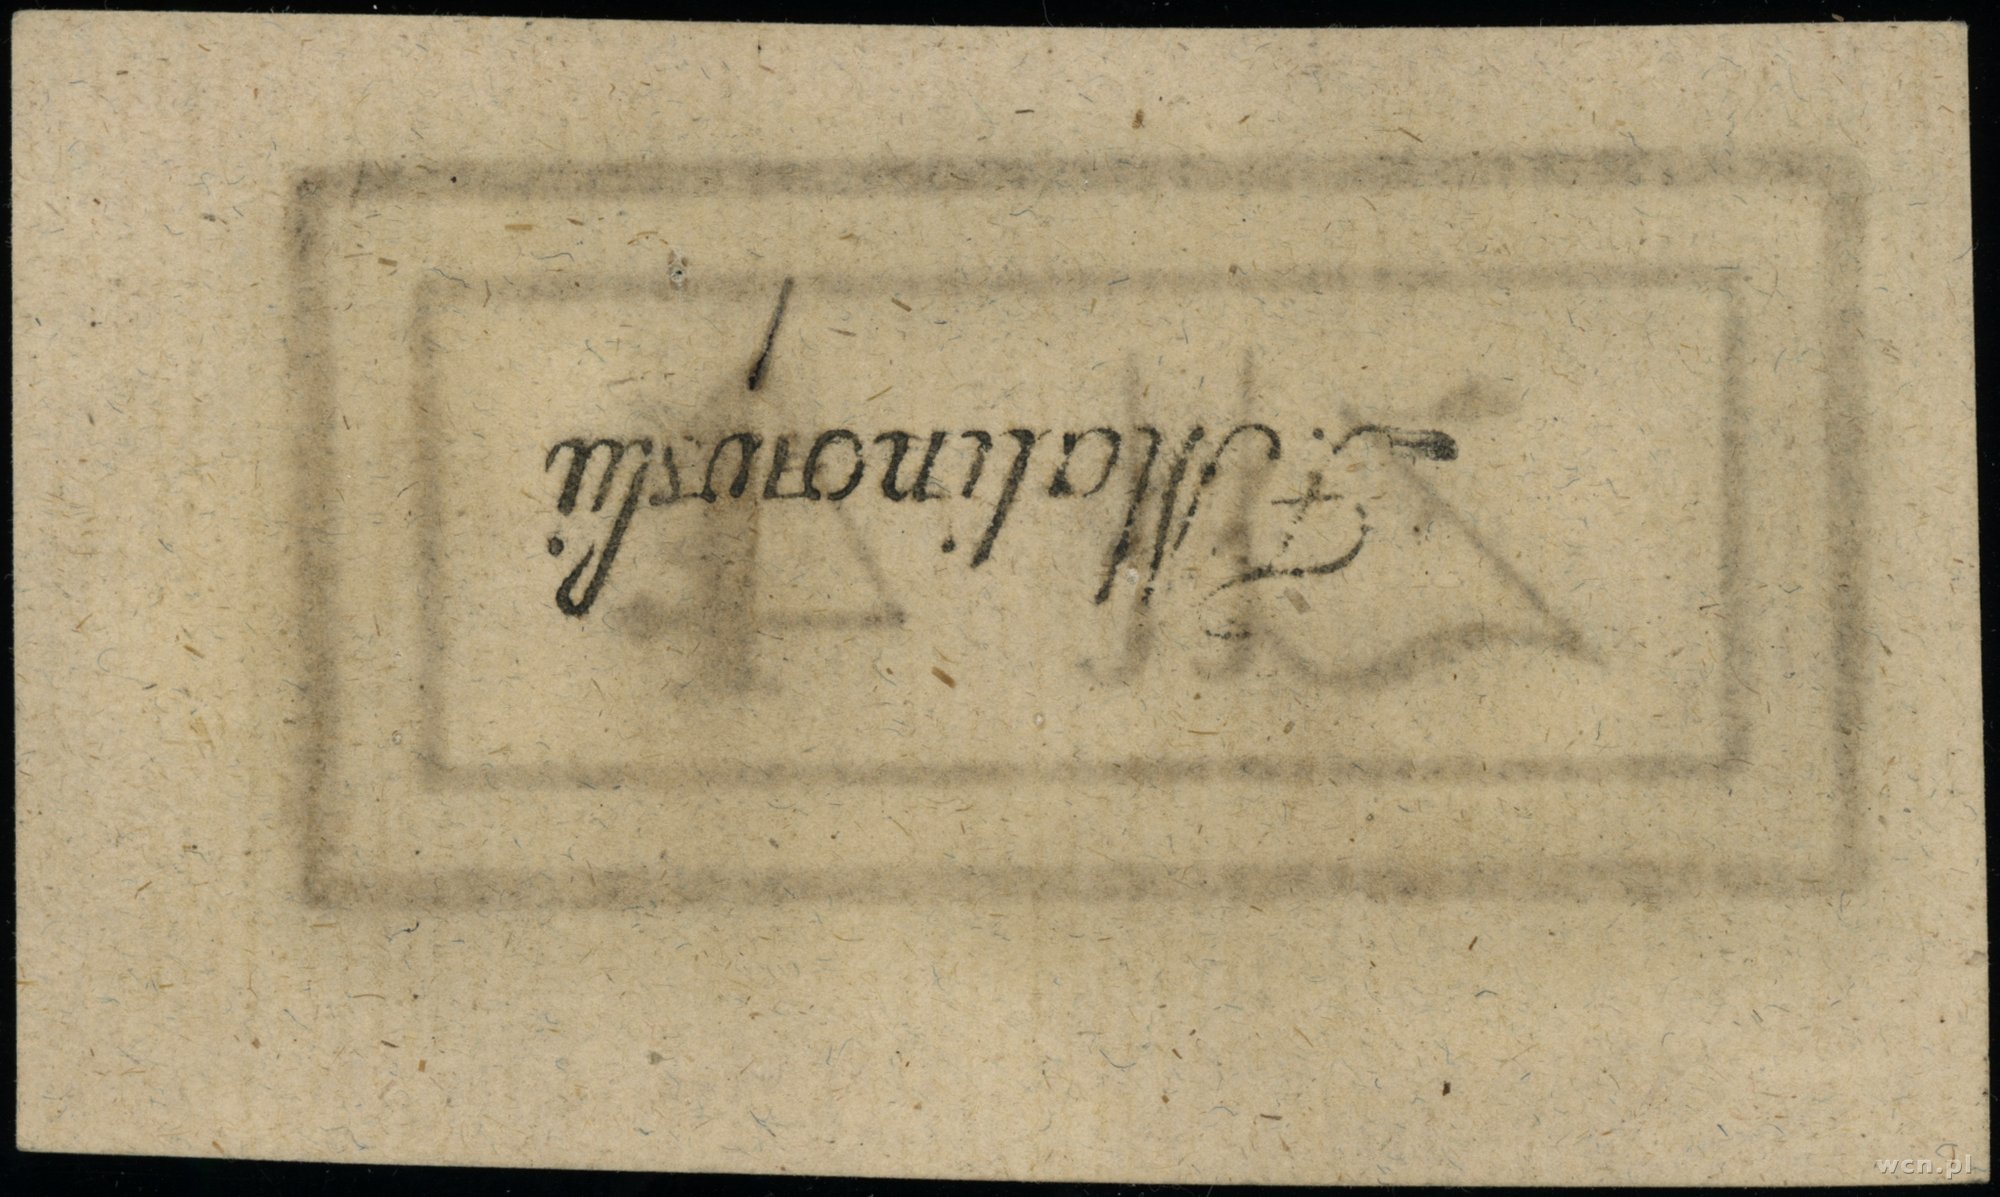 F. Malinowski
wcn.pl